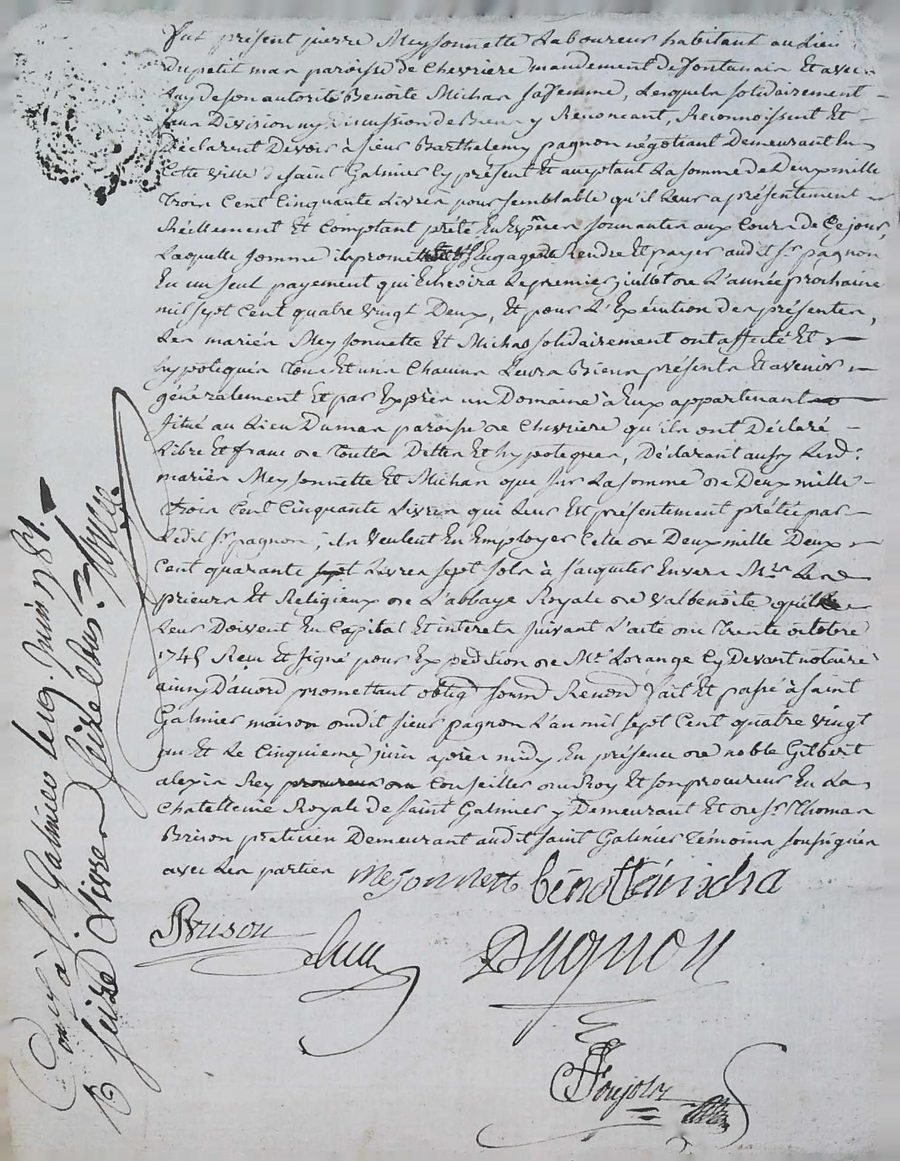 fut présent pierre Meyssonnette Laboureur habitant au Lieu
Dupetit mas paroisse de Chevriere mandement de fontanais Et avec
Luy de son autorité Benoite Michas sa femme, Lesquels solidairement
sans Division ny Discussion de Biens y Renonçant, Reconnoissent Et
Déclarent Devoir a sieur Barthelemy pagnon négotiant Demeurant En
Cette ville de saint Galmier Cy présent Et aceptant La somme de Deux mille
Trois Cent Cinquante Livres pour semblable qu'il Leur a présentement
Réellement Et Comptant prété En Espêces sonnantes aux Cours de Ce jour,
Laquelle somme ils promettent Rendre Et payer audit sr. pagnon
En un seul payement qui Echeoira Le premier juillet de L'année prochaine
mil sept Cent quatre vingt Deux, Et pour L'Exécution des présentes,
Les mariés Meyssonnette Et Michas solidairement ont affecté Et
hypotequés Tous Et uns Chacuns Leurs Biens présents Et avenir
généralement Et par Exprès un Domaine à Eux appartenant
situé au Lieu Dumas paroisse de Chevriere qu'ils ont Déclaré
Libre Et franc de Toutes Dettes Et hypoteques, Déclarant aussy Lesd:
mariés Meyssonnette Et Michas que sur La somme de Deux mille
Trois Cent Cinquante Livres qui Leur Est présentement prétée par
Ledit sr. pagnon, ils veulent En Employer Cette de Deux mille Deux
Cent quarante Livres sept sols à s'acquiter Envers Mrs. Les
prieurs Et Religieux de L'abbaye Royale de valbenoite qu'ils
Leur Doivent En Capital Et interets suivant L'acte du Trente octobre
1745 Recu Et signé pour Expedition de Me. Lorange Cy Devant notaire
ainsy D'acord promettant oblig soumd Renond fait Et passé à saint
Galmier maison dudit sieur pagnon L'an mil sept Cent quatre vingt
un Et Le Cinquieme juin après midy En présence de noble Gilbert
alexis Rey procureur du Conseiller du Roy Et son procureur En La
Chatellenie Royale de saint Galmier y Demeurant Et de sr. Thomas
Brison praticien Demeurant audit saint Galmier Témoins soussignés
avec Les parties
Mesonnett benoite micha
Brison
Pagnon
Controllé à St. Galmier le 19. Juin 1781.
R seize Livres seize sous.